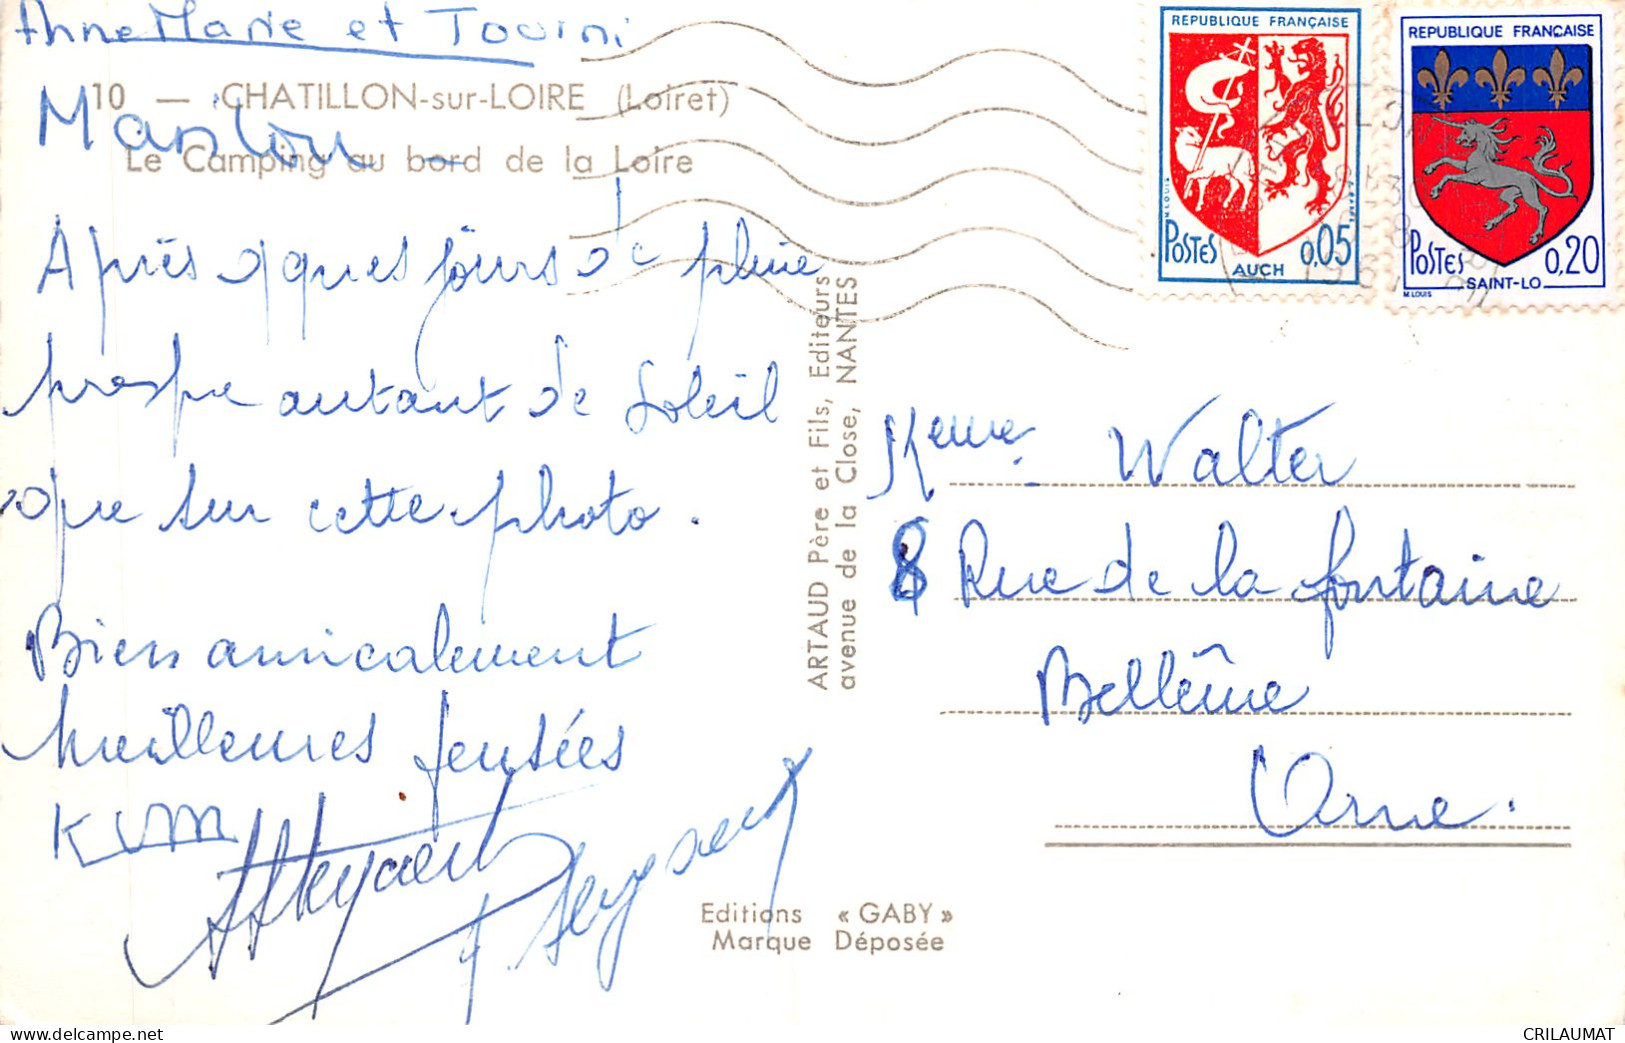 Anne Marie et Tourni
10 — CHATILLON-sur-LOIRE (Loiret)
Marilou
Le Camping au bord de la Loire
Après qques jours de pluie
presque autant de soleil
que sur cette photo.
Bien amicalement
Meilleures pensées
KIM
ARTAUD Père et Fils, Editeurs
avenue de la Close, NANTES
Editions « GABY »
Marque Déposée
REPUBLIQUE FRANÇAISE
M.LOUIS
POSTES 0,05
AUCH
REPUBLIQUE FRANÇAISE
POSTES 0,20
SAINT-LO
M.LOUIS
Meme. Walter
8 Rue de la fontaine
Bellême
Orne.
www.delcampe.net
CRILAUMAT